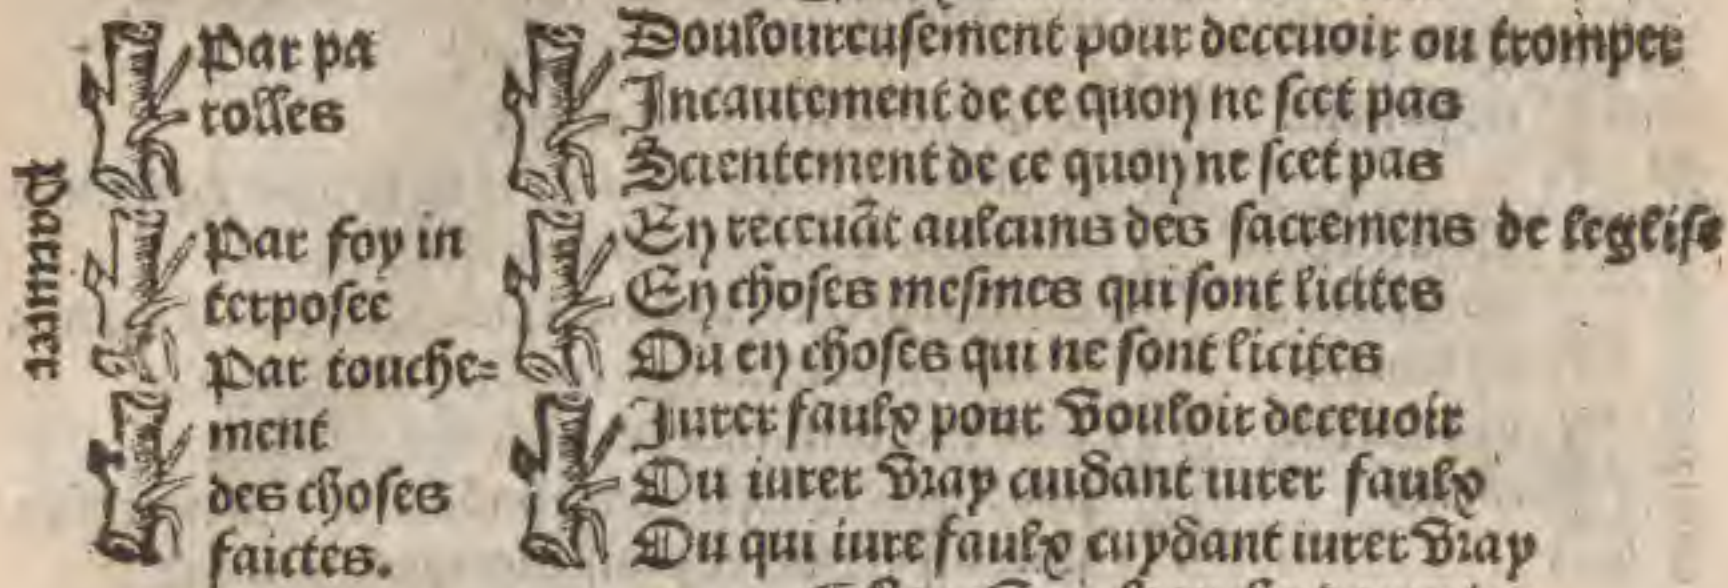 Pariurer
Par pa
rolles
Par foy in
terposee
Par touche=
ment
des choses
faictes.
Douloureusement pour deceuoir ou tromper
Incautement de ce quon ne scet pas
Scientement de ce quon ne scet pas
En receuãt aulcuns des sacremens de leglise
En choses mesmes qui sont licites
Ou en choses qui ne sont licites
Iurer faulx pour vouloir deceuoir
Ou iurer vray cuidant iurer faulx
Ou qui iure faulx cuydant iurer vray